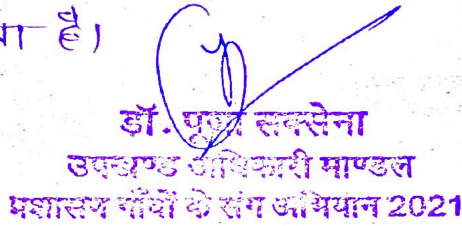 है।
डॉ. पूजा सक्सेना
उपखण्ड अधिकारी माण्डल
प्रशासन गाँवों के संग अभियान 2021